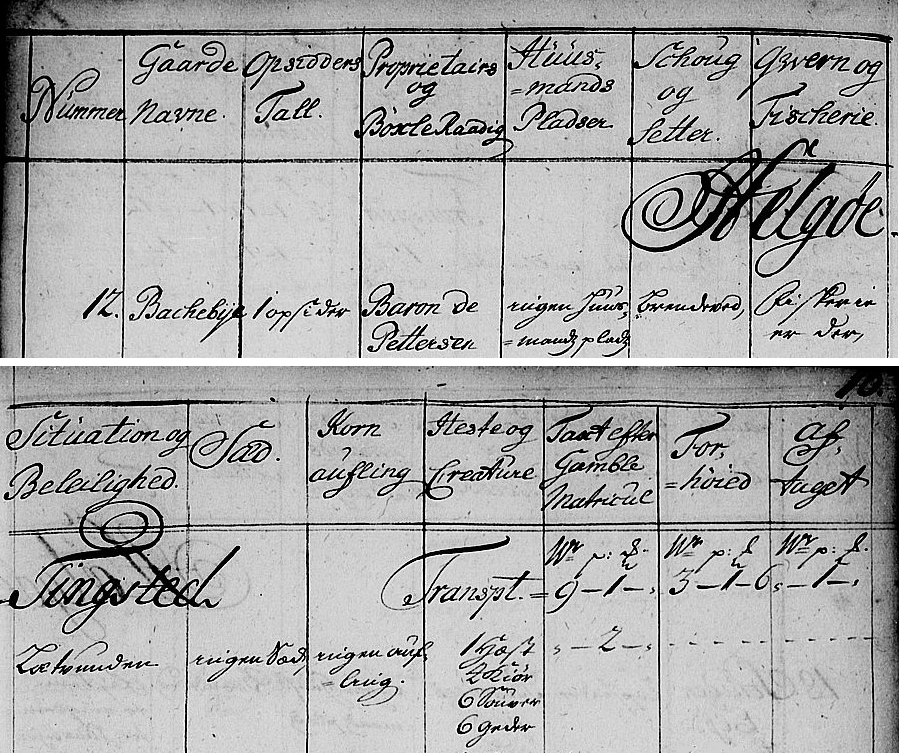 Nummer
Gaarde
Navne.
Opsidders
Tall.
Proprietairs
og
Böxle Raadig
Huus-
=mands
Pladser
Schoug
og
Setter.
Qvern og
Fischerie.
Helgöe
12. Bachebye 1 opsider Baron de ingen Huus- brendeved, fiskerie
Pettersen =mands plads er der,
10.
Situation og
Beleilighed.
Sæd.
Korn
aufling
Heste og
Creature
Taxt efter
Gamble
Matricul
For-
=höied
Af-
taget
Wr p: . Wr p: Wr p: .
Tingsted Transpt. = 9 – 1 – , 3 – 1 – 6, – 1 – ,
Letvunden ingen Sæd, ingen auf- 1 Hæst , – 2 – ,
=ling. 2 Kiör
6 Souver
6 Geder